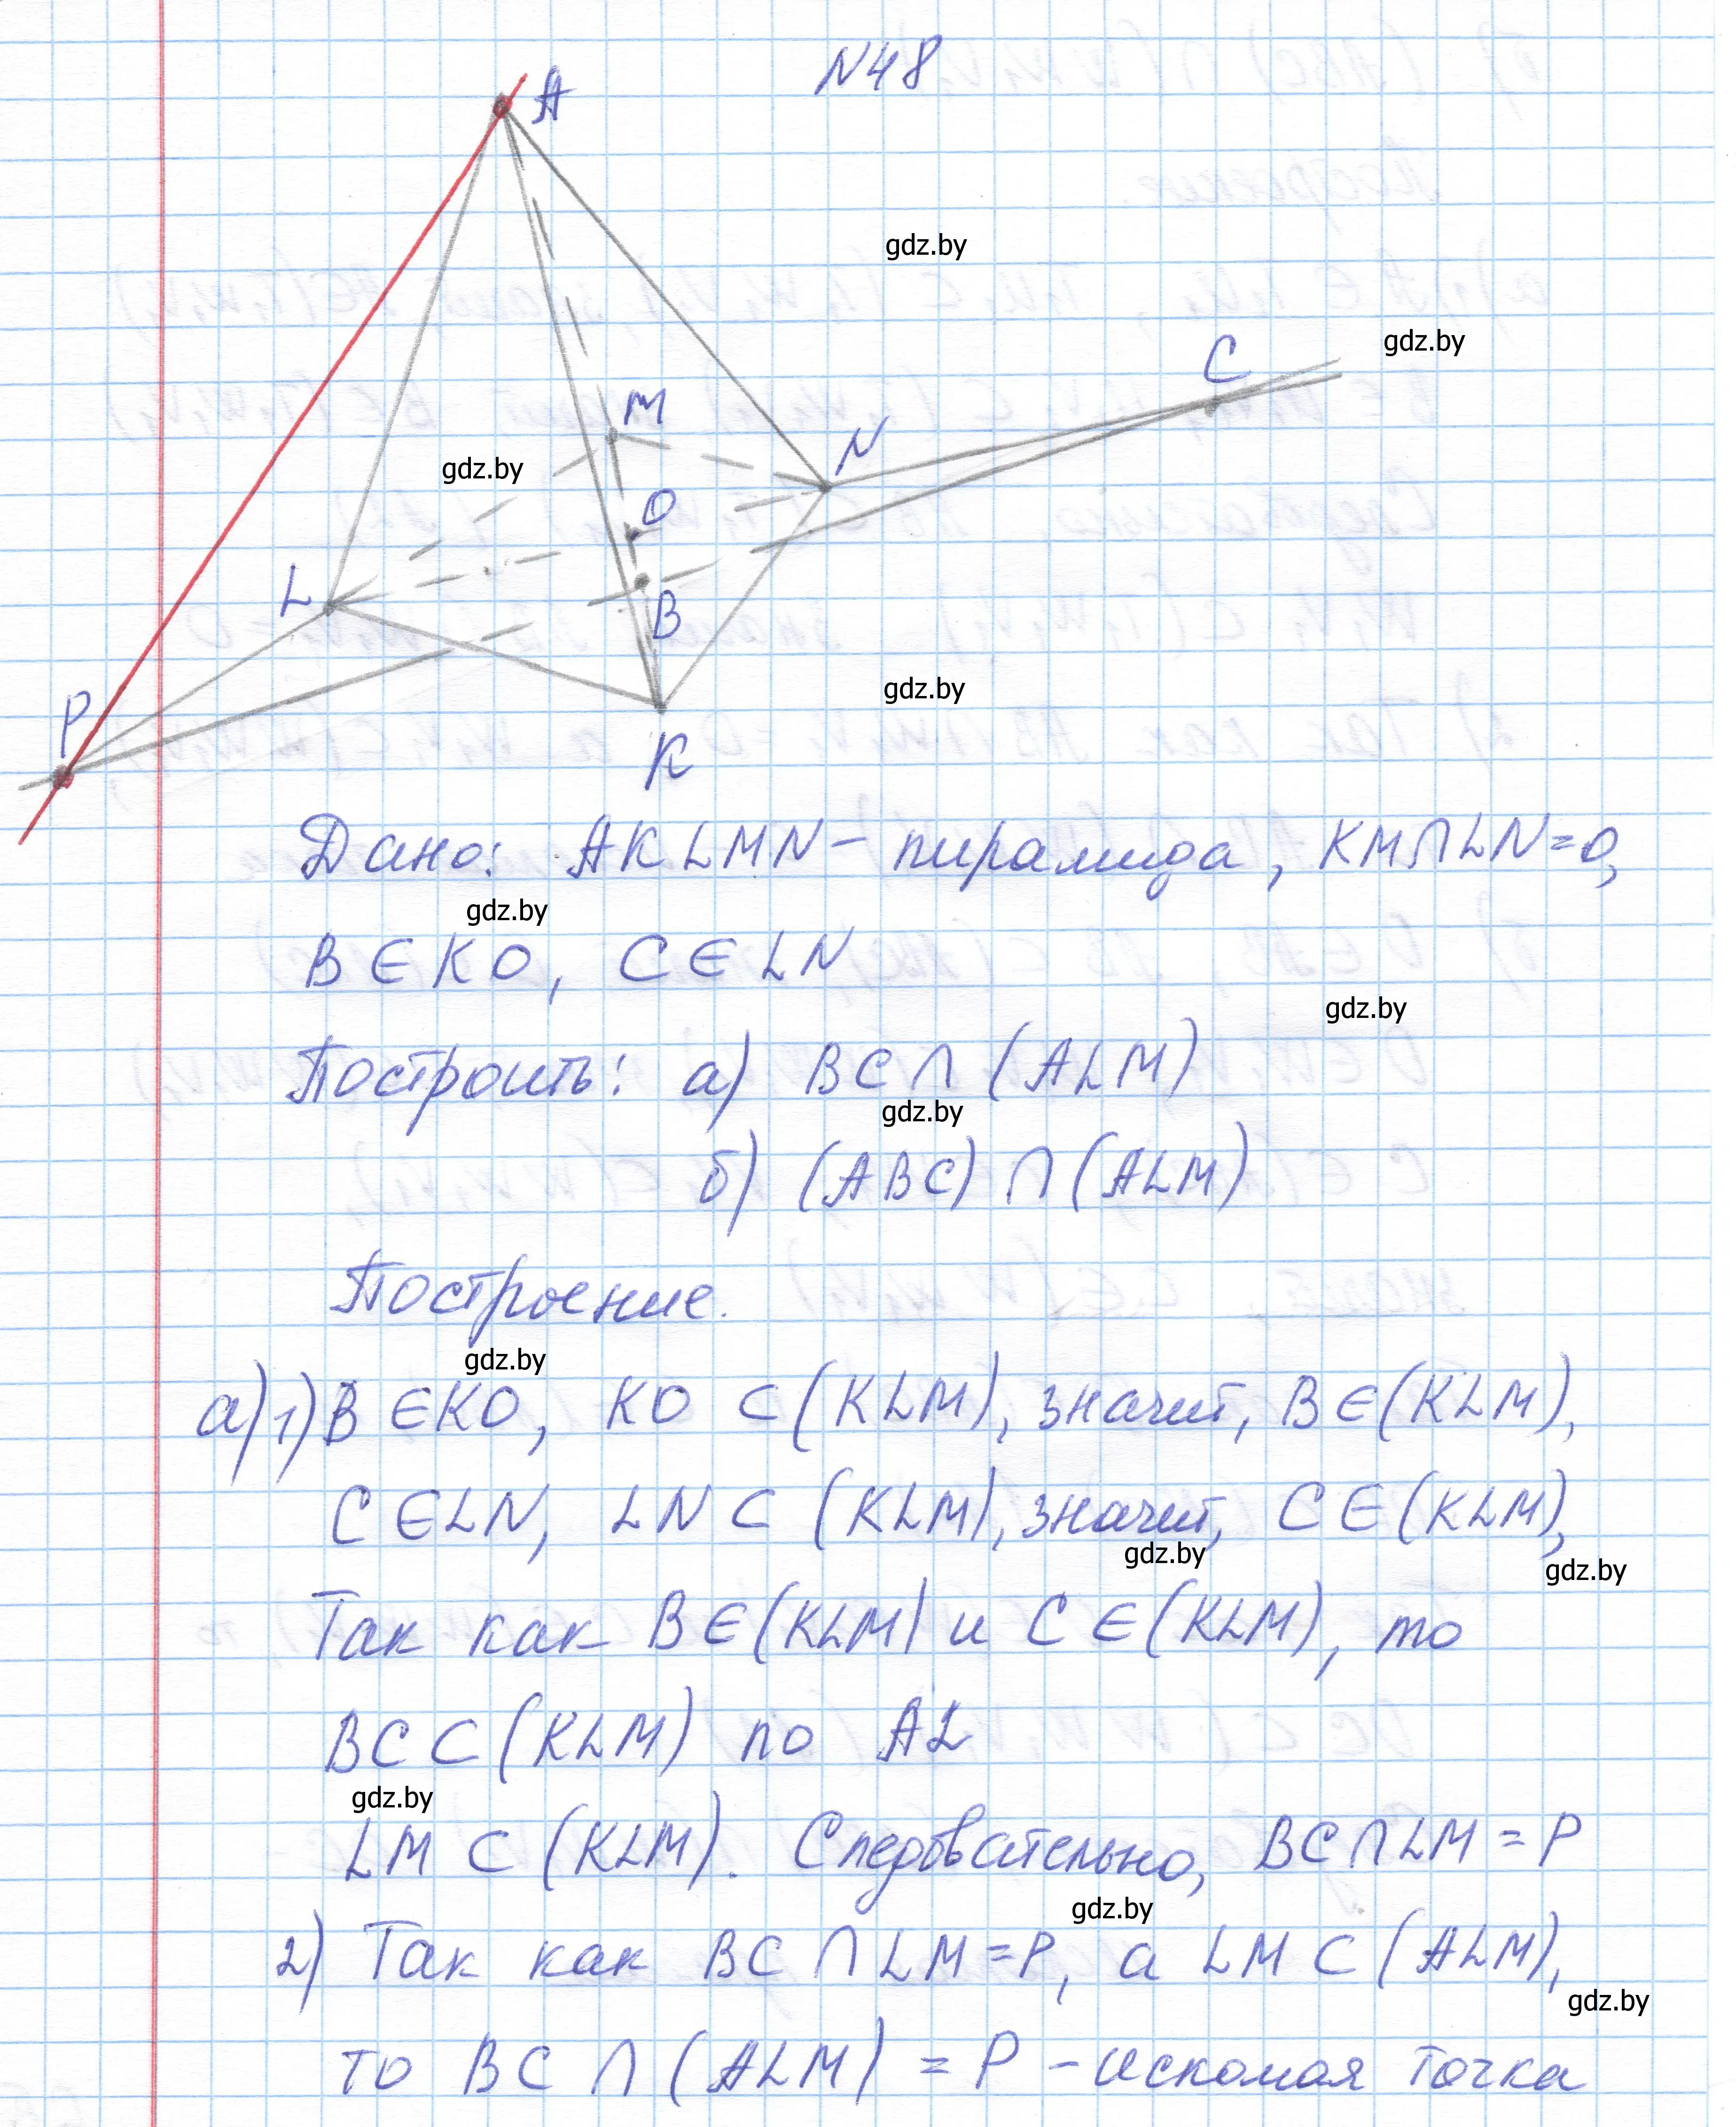 N48
A
gdz.by
C
gdz.by
M
N
gdz.by
O
L
B
gdz.by
P
K
Дано: AKLMN – пирамида, KM∩LN=O,
gdz.by
B∈KO, C∈LN
gdz.by
Построить: а) BC∩(ALM)
gdz.by
б) (ABC)∩(ALM)
Построение.
gdz.by
а) 1) B∈KO, KO⊂(KLM), значит, B∈(KLM),
C∈LN, LN⊂(KLM), значит, C∈(KLM),
gdz.by
gdz.by
Так как B∈(KLM) и C∈(KLM), то
BC⊂(KLM) по A2
gdz.by
LM⊂(KLM). Следовательно, BC∩LM=P
gdz.by
2) Так как BC∩LM=P, а LM⊂(ALM),
gdz.by
то BC∩(ALM)=P – искомая точка